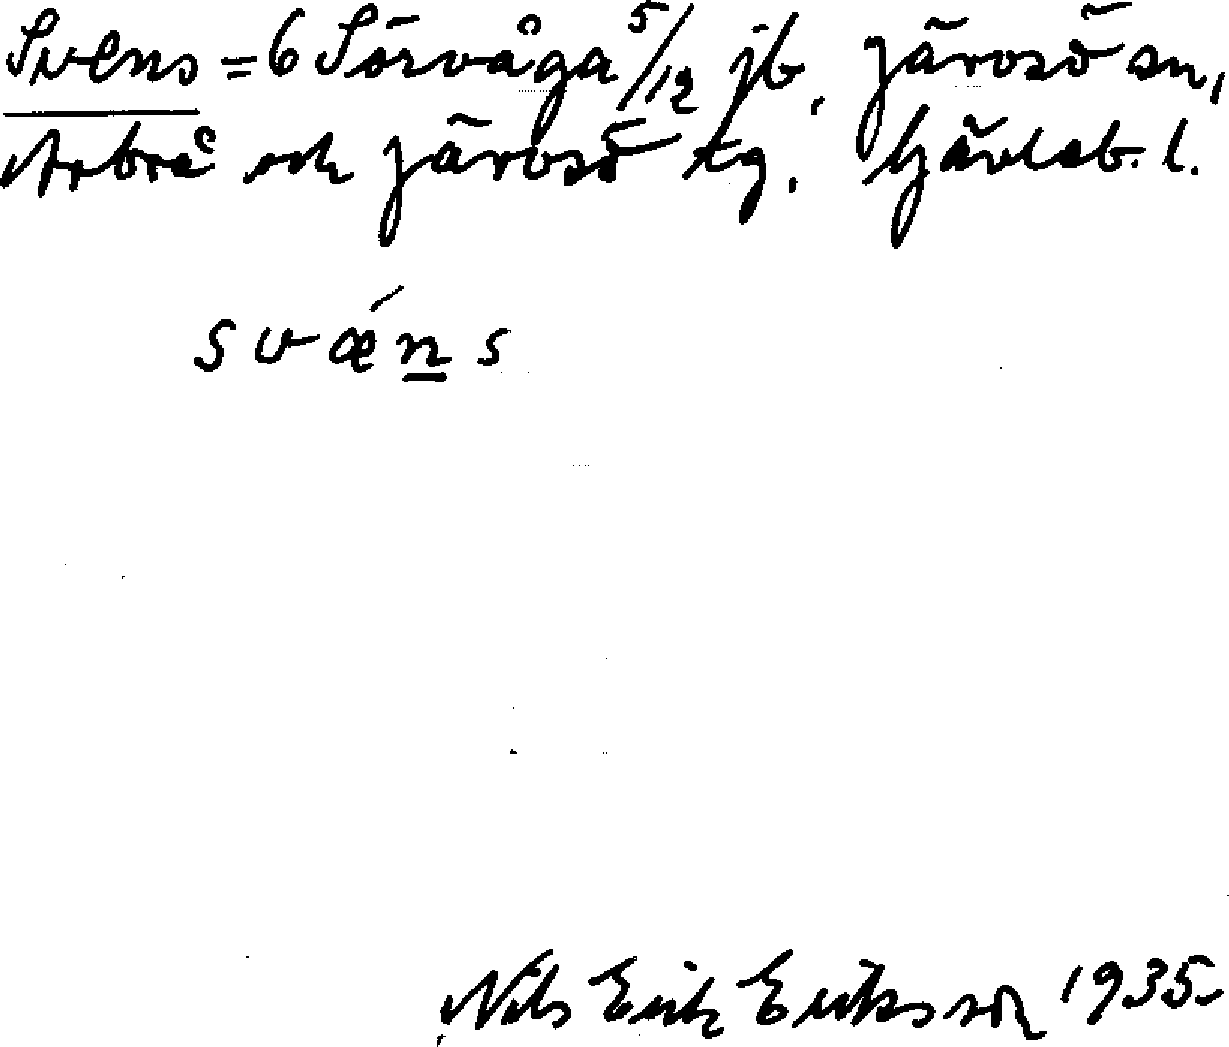 Svens = 6 Sörvåga 5/12 jb, Järvsö sn,
Arbrå och Järvsö tg, Gävleb. l.
svǽns
Nils Erik Eriksson 1935